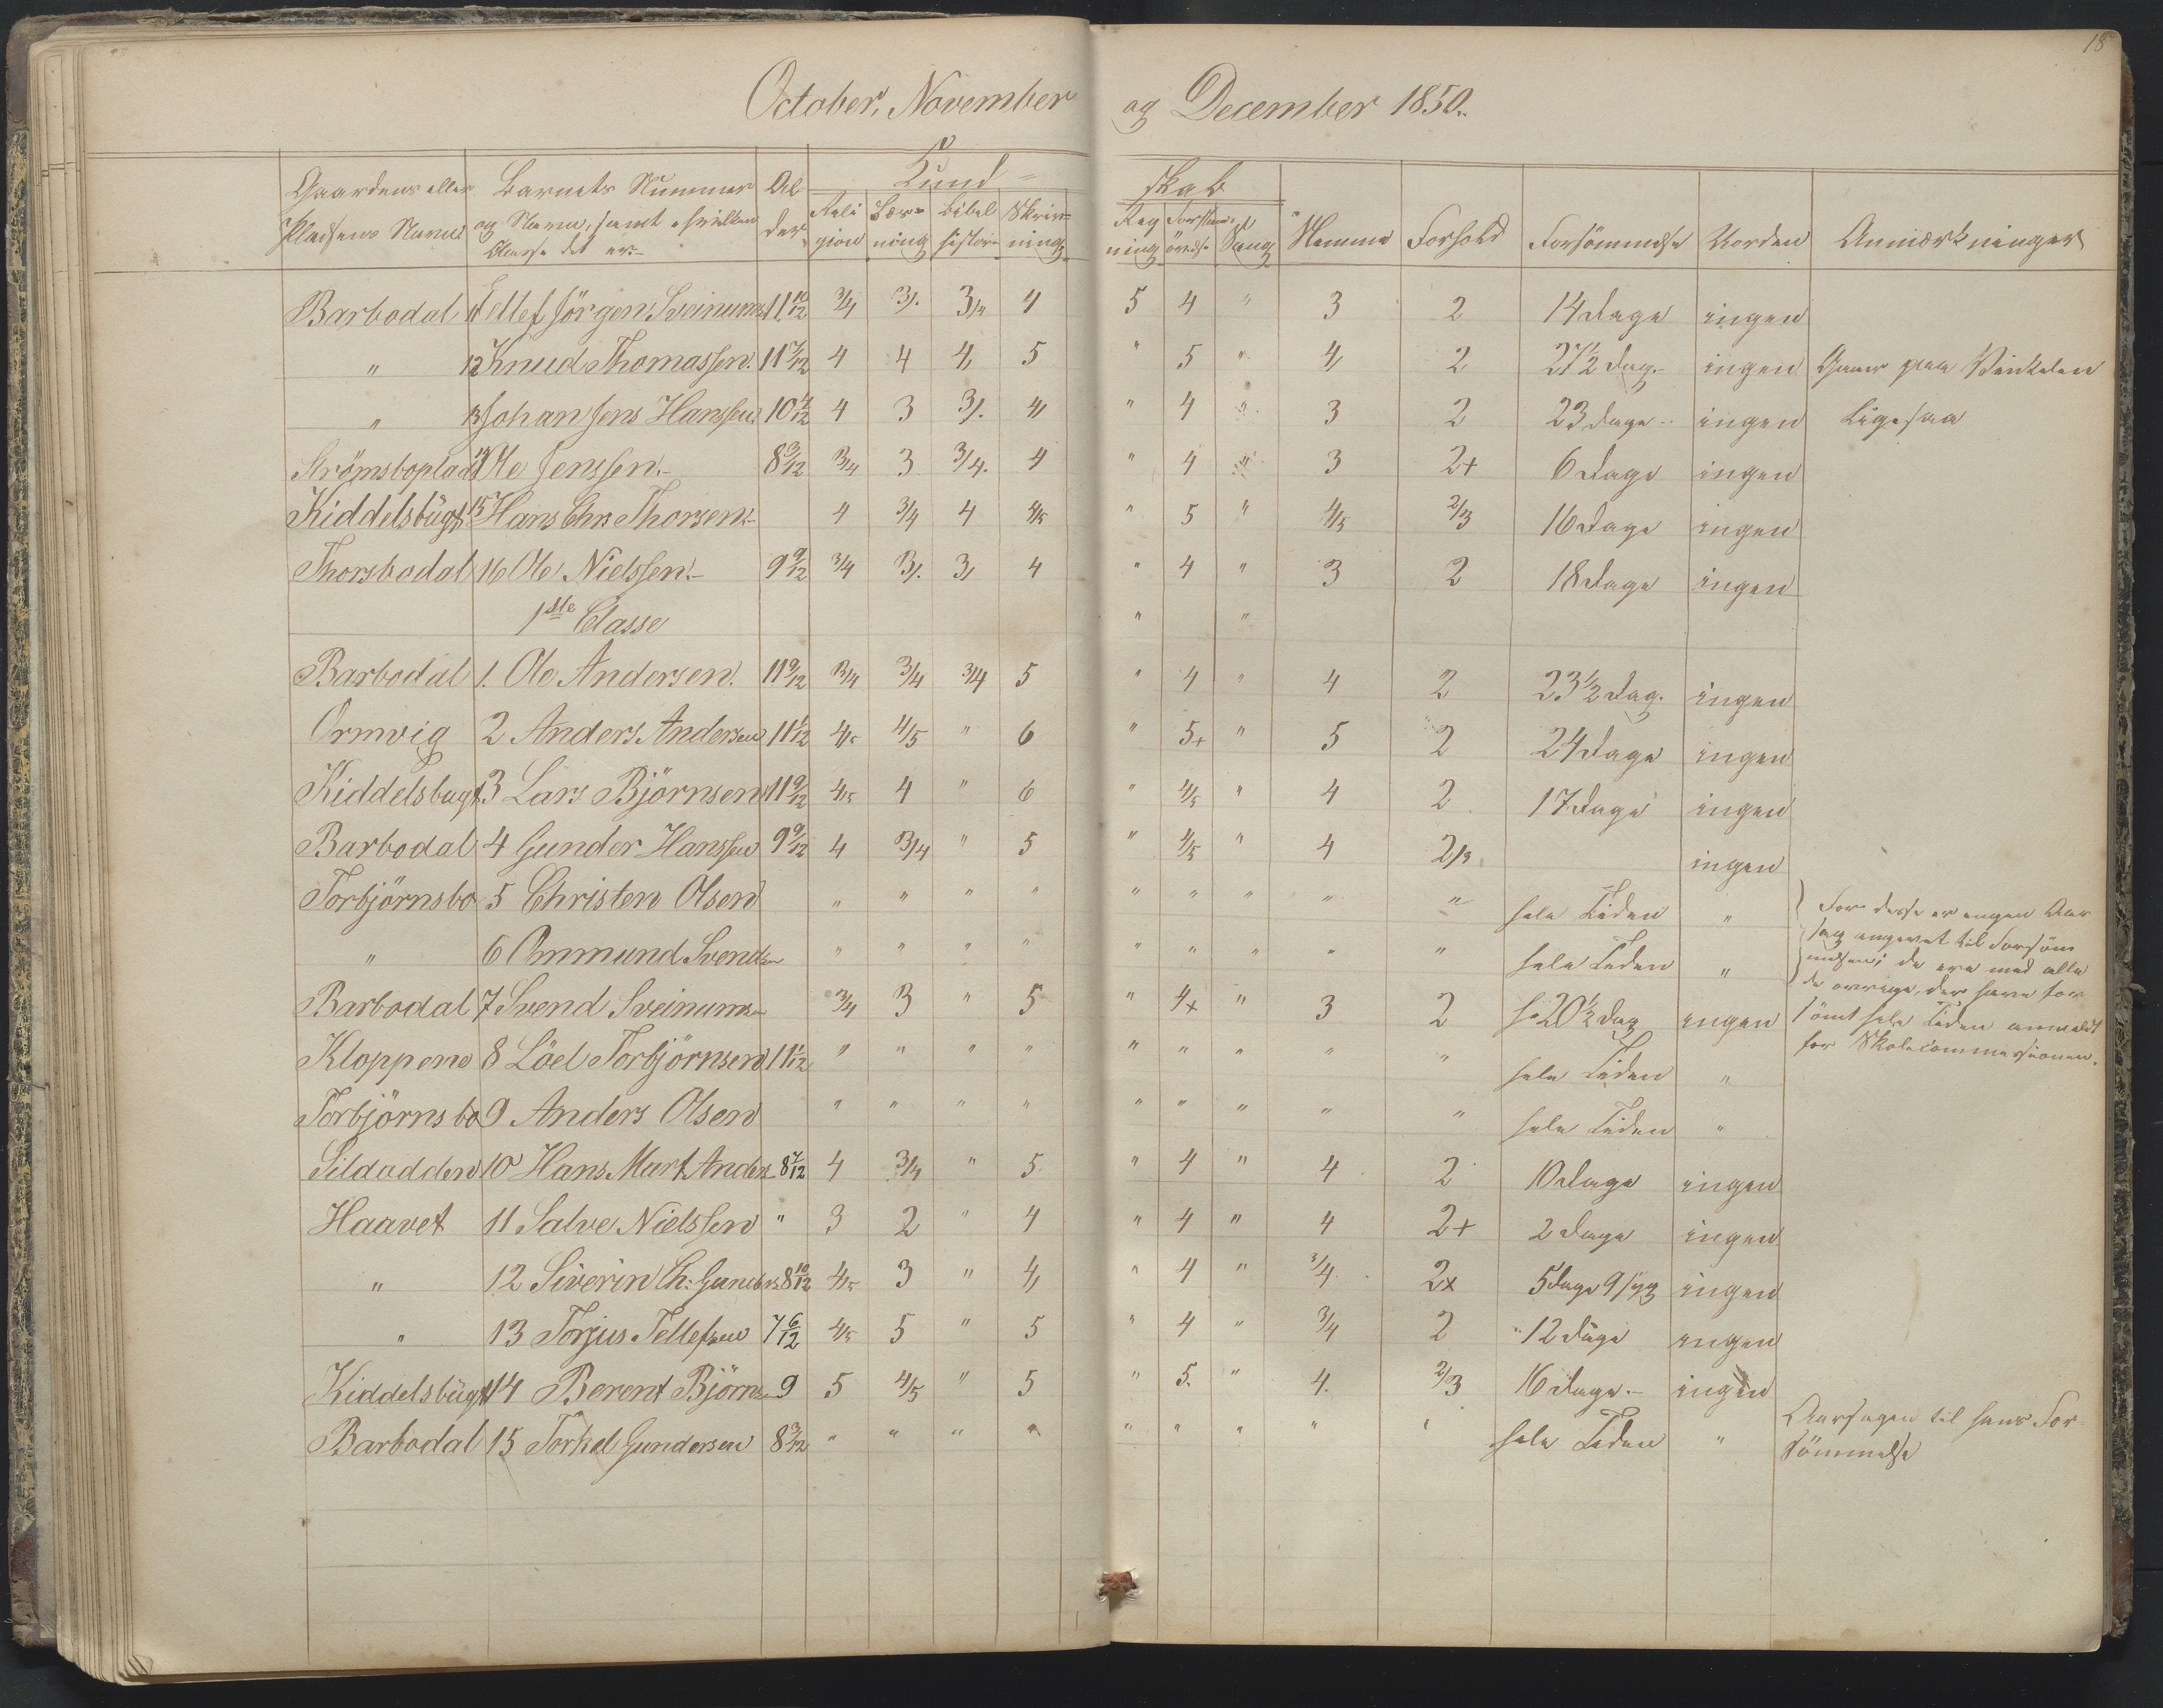 18
October, November og December 1850.
Gaardens eller Pladsens Navn Barnets Nummer og Navn, samt i hvilken Classe det er. Alder Kundskab Nemme Forhold Forsömmelse Uorden Anmærkninger
Religion Læsning bibelhistorie Skrivning Regning Sang
Barbodal 11 Tellef Jörgen Sveinums 11 10/12 3/4 3/. 3/4 4 5 4 " 3 2 14 dage ingen
" 12 Knud Thomassen. 11 7/12 4 4 4 5 " 5 " 4 2 27½ dag. ingen Gaaer paa Vinkelen
" 13 Johan Jens Hanssen 10 4/12 4 3 3/. 4 " 4 " 3 2 23 dage ingen Ligesaa
Strömsboplad 14 Ole Jenssen 8 3/12 3/4 3 3/4. 4 " 4 " 3 2+ 6 dage ingen
Kiddelsbügt 15 Hans Chrs Thorsen 4 3/4 4 4/5 " 5 " 4/5 2/3 16 dage ingen
Thorsbodal 16 Ole Nielssen 9 9/12 3/4 3/. 3 4 " 4 " 3 2 18 dage ingen
1ste Classe " "
Barbodal 1. Ole Andersen. 11 9/12 3/4 3/4 3/4 5 " 4 " 4 2 23½ dag. ingen
Ormvig 2 Anders Andersen 11 1/12 4/5 4/5 " 6 " 5+ " 5 2 24 dage ingen
Kiddelsbugt 3 Lars Björnsen 11 9/12 4/5 4 " 6 " 4/5 " 4 2 17 dage ingen
Barbodal 4 Gunder Hanssen 9 9/12 4 3/4 " 5 " 4/5 " 4 2/3 ingen
Torbjörnsbo 5 Christen Olsen " " " " " " " " " hele Tiden " For disse er ingen Aar
" 6 Ommund Svendsen " " " " " " " " " hele Tiden " sag angivet til Forsöm
melsen; de ere med alle
Barbodal 7 Svend Sveinumsen 3/4 3 " 5 " 4x " 3 2 20½ dag ingen de övrige, der have for
sömt hele Tiden anmeldt
Kloppene 8 Löel Torbjörnsen 11 1/12 " " " " " " " " " hele Tiden " for Skolecommissionen.
Torbjörnsbo 9 Anders Olsen " " " " " " " " " hele Tiden "
Sildodden 10 Hans Mart Anders 8 7/12 4 3/4 " 5 " 4 " 4 2 10 dage ingen
Haavet 11 Salve Nielssen " 3 2 " 4 " 4 " 4 2+ 2 dage ingen
" 12 Siverin Ch: Gunders 8 10/12 4/5 3 " 4 " 4 " 3/4 2x 5 dage 9 syg ingen
" 13 Torjus Tellefsen 7 6/12 4/5 5 " 5 " 4 " 3/4 2 12 dage ingen
Kiddelsbügt 14 Berent Björnsen 9 5 4/5 " 5 " 5. " 4. 2/3 16 dage. ingen
Barbodal 15 Torkel Gundersen 8 3/12 " " " " " " " " " hele Tiden " Aarsagen til hans For
sömmelse